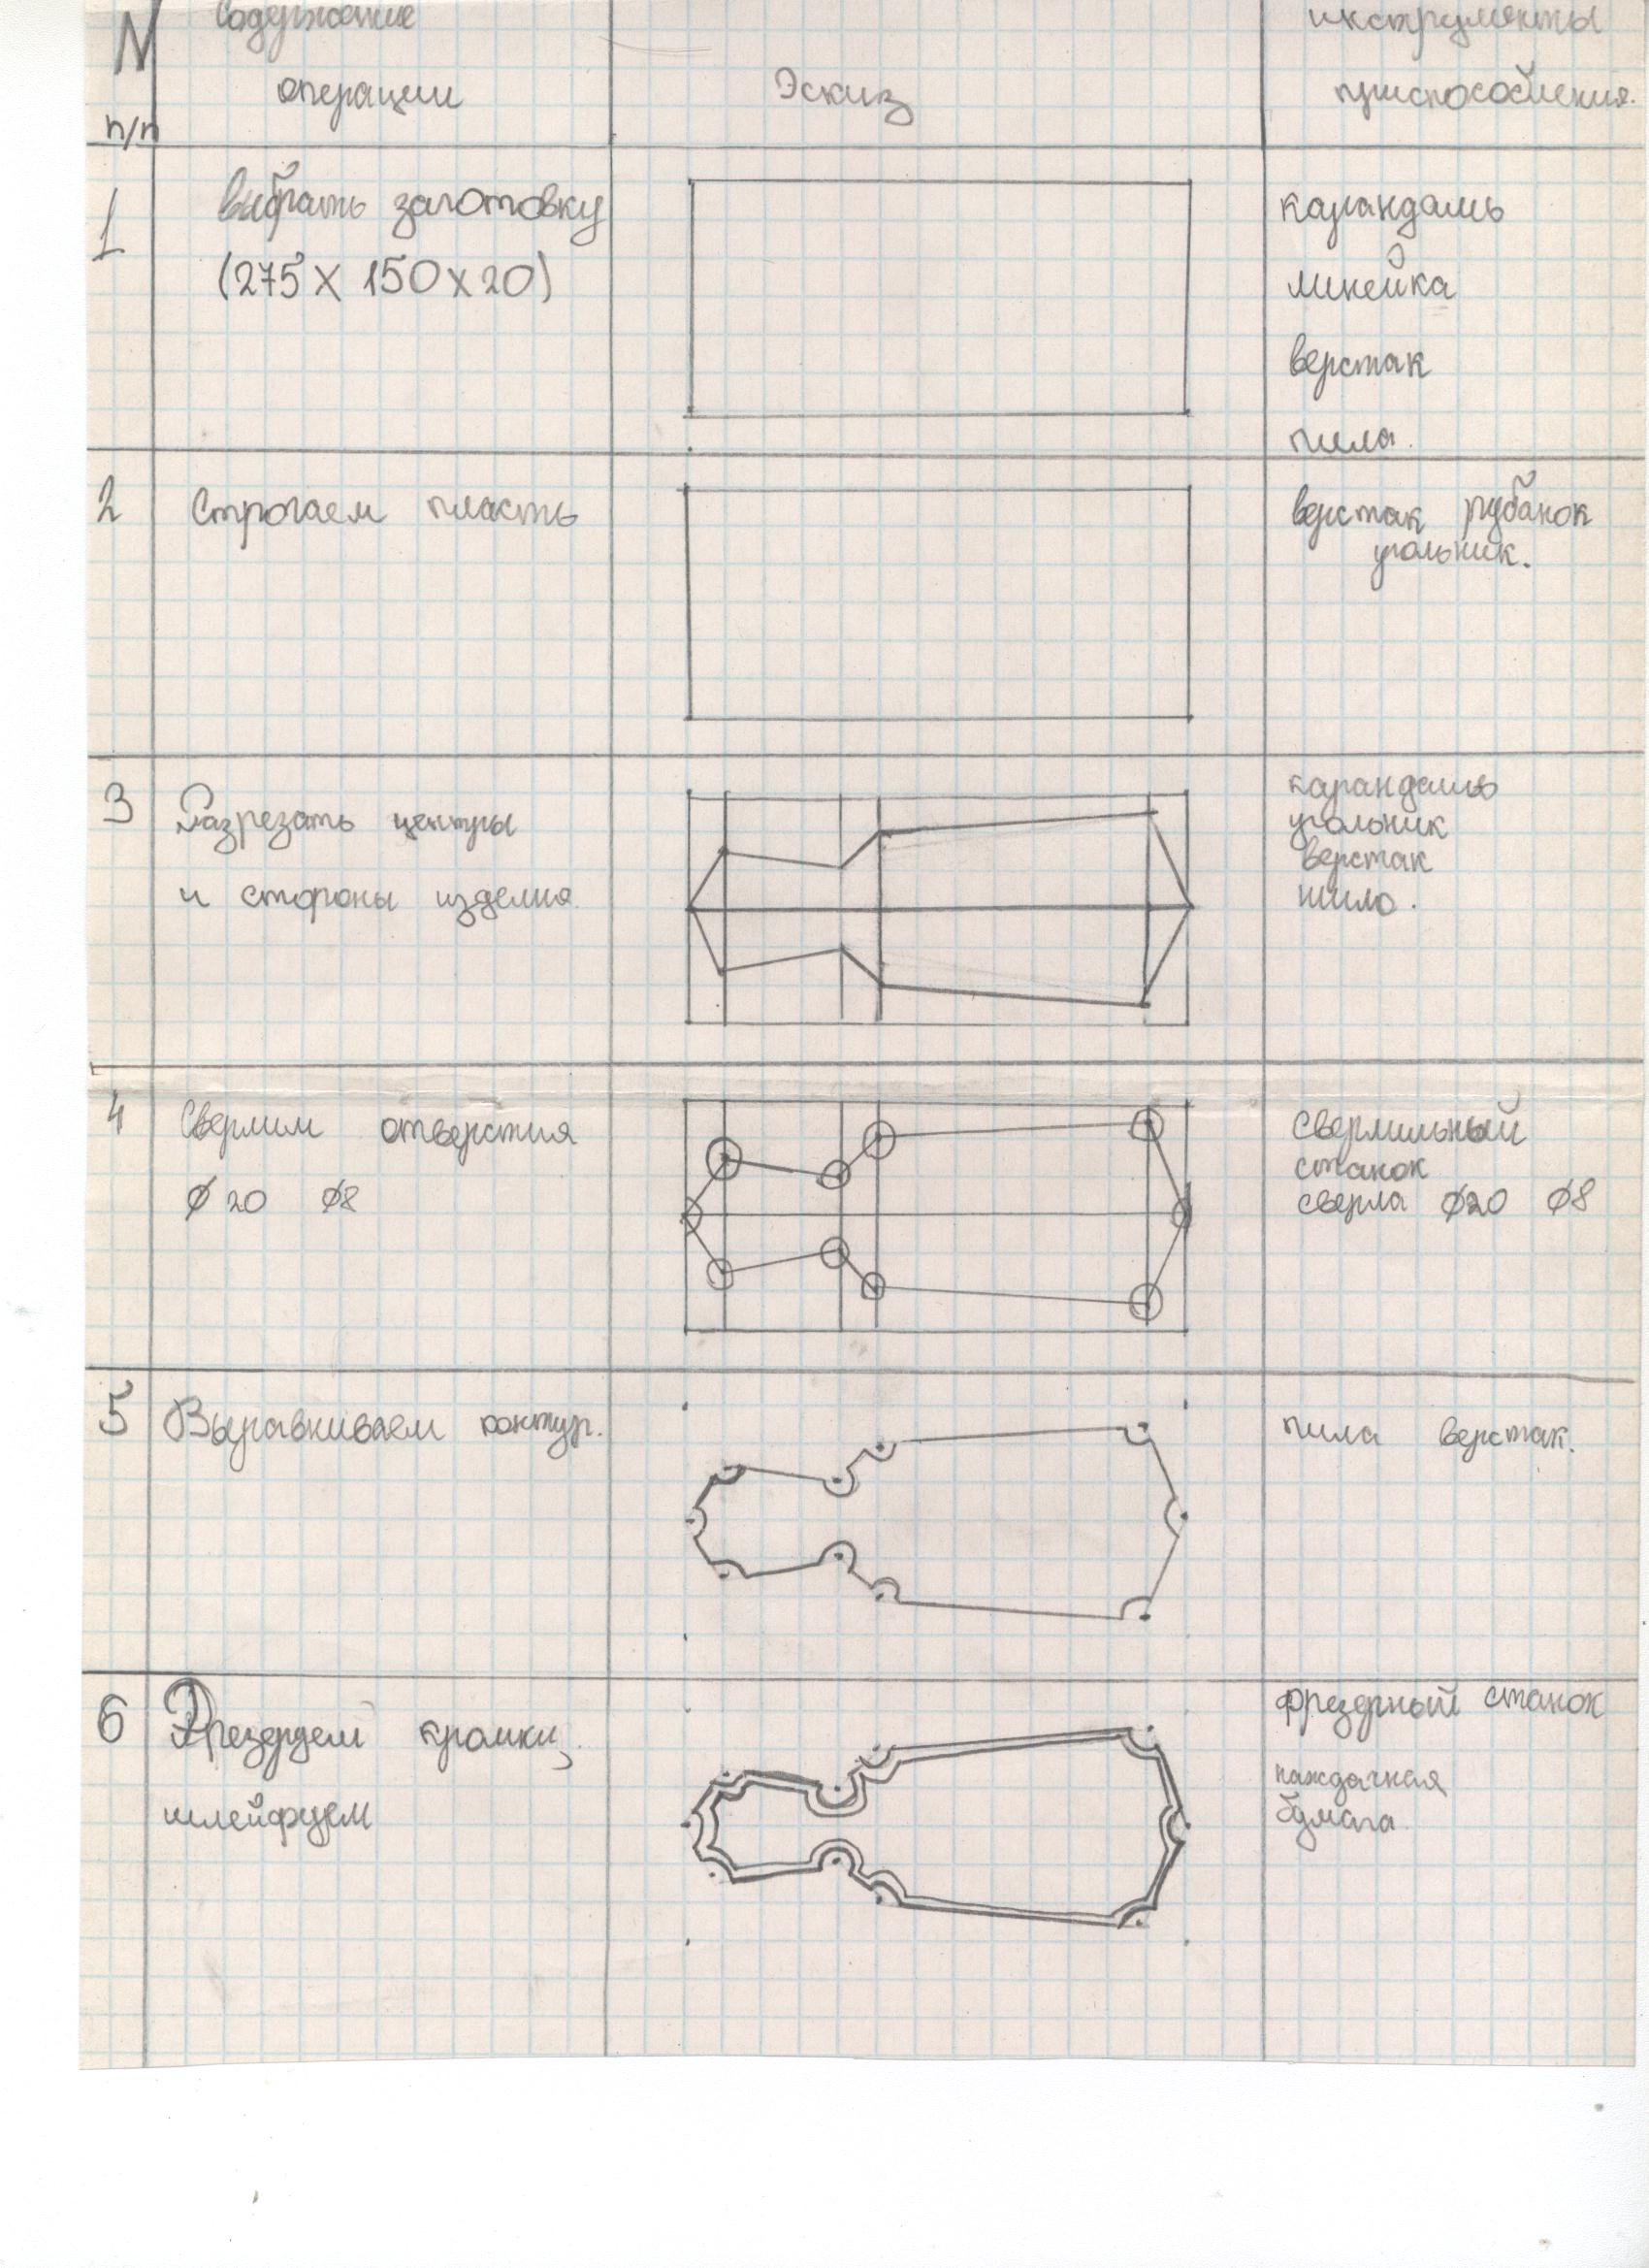 N
п/п
Содержание
операции
Эскиз
инструменты
приспособления.
1
выбрать заготовку
(275 х 150 х 20)
карандашь
линейка
верстак
пила.
2
Строгаем пласть
верстак рубанок
угольник.
3
Разрезать центры
и стороны изделия
карандашь
угольник
верстак
4
Сверлим отверстия
⌀ 20 ⌀8
сверлильный
станок
сверла ⌀20 ⌀8
5
Выравниваем контур.
пила верстак.
6
Фрезеруем кромки,
шлейфуем
фрезерный станок
наждачная
бумага.